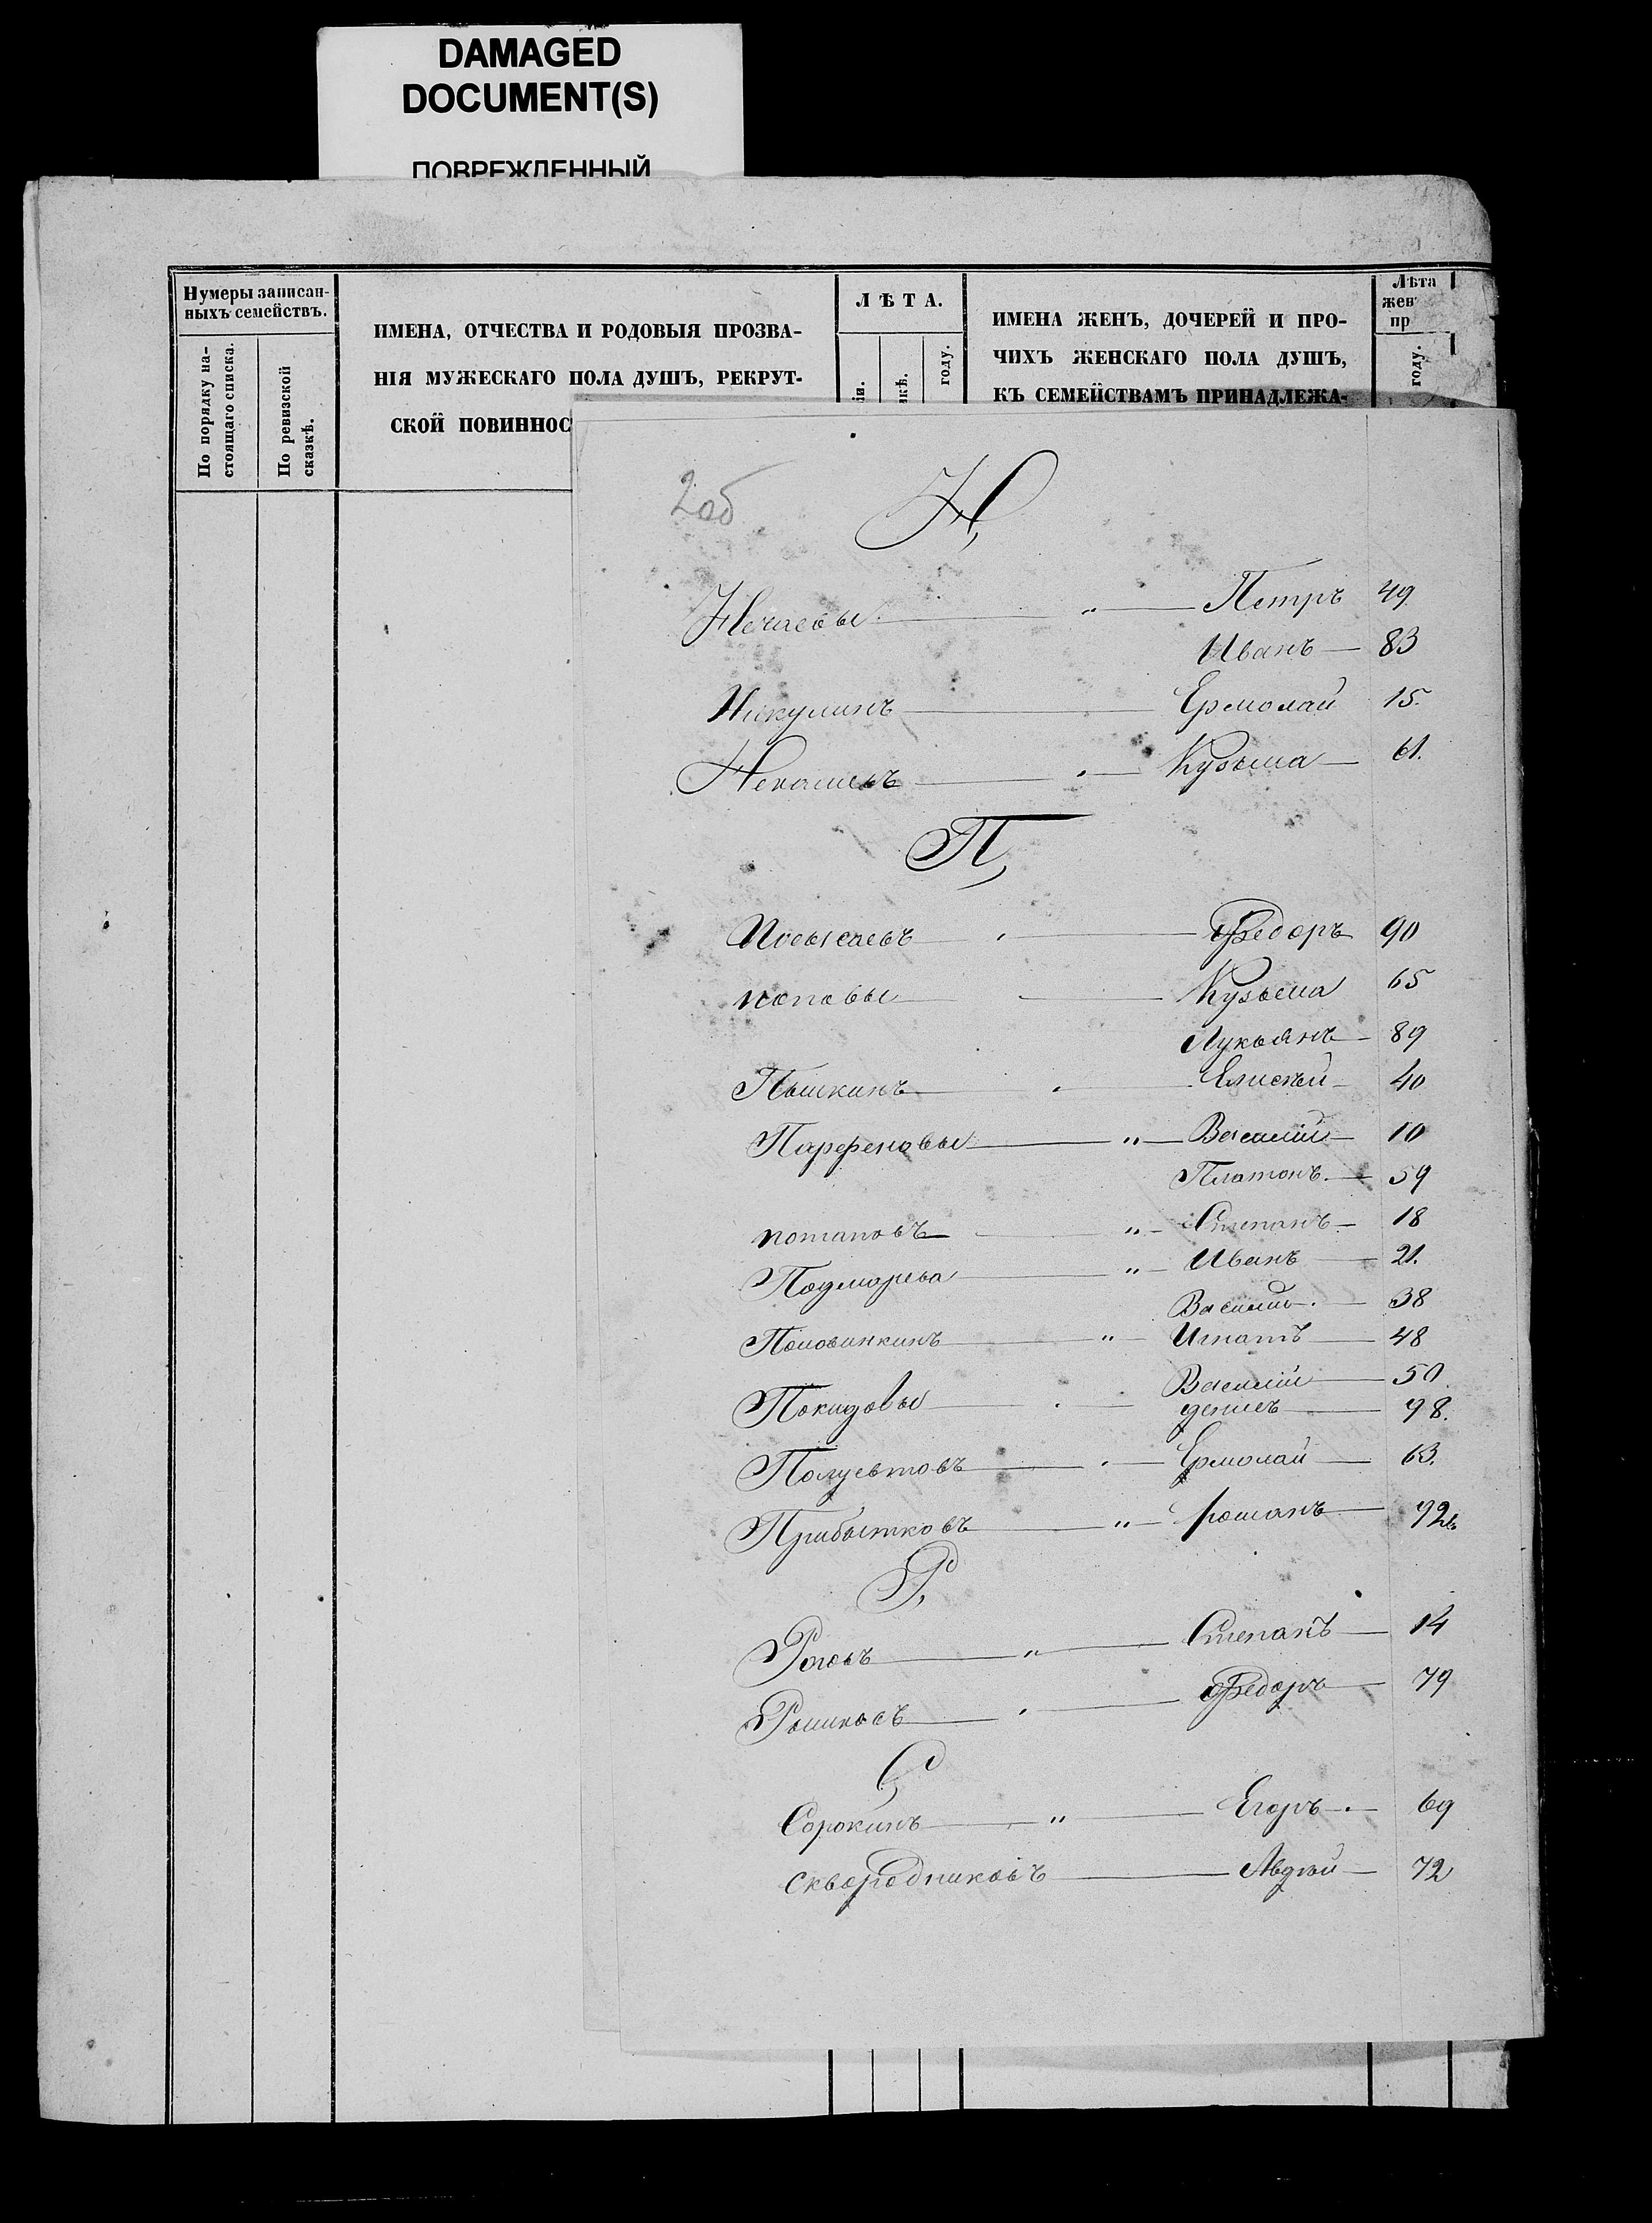 DAMAGED
DOCUMENT(S)
ПОВРЕЖДЕННЫЙ
Нумеры записан-
ныхъ семействъ.
По порядку на-
стоящаго списка.
По ревизской
сказкѣ.
ИМЕНА, ОТЧЕСТВА И РОДОВЫЯ ПРОЗВА-
НІЯ МУЖЕСКАГО ПОЛА ДУШЪ, РЕКРУТ-
СКОЙ ПОВИННОС
ЛѢТА.
году.
ИМЕНА ЖЕНЪ, ДОЧЕРЕЙ И ПРО-
ЧИХЪ ЖЕНСКАГО ПОЛА ДУШЪ,
КЪ СЕМЕЙСТВАМЪ ПРИНАДЛЕЖА-
Лѣта
жен
пр
году.
2об
Н,
Нечаевы " Петръ 49
Иванъ 83
Никулинъ Ермолай 15.
Кузьма 61.
П,
Федоръ 90
поповы Кузьма 65
Лукьянъ 89
Пышкинъ Елисѣй 40
Парфеновы " Василій 10
Платонъ 59
потаповъ " Степанъ 18
" Иванъ 21.
Василій 38
Половинкинъ " Игнатъ 48
Василій 50
денисъ 98.
Полуевтовъ Ермолай 63.
Прибытковъ " романъ 92
Р,
" Степанъ 14
Федоръ 79
С,
Сорокинъ " Егоръ 69
сквородниковъ Авдѣй 72